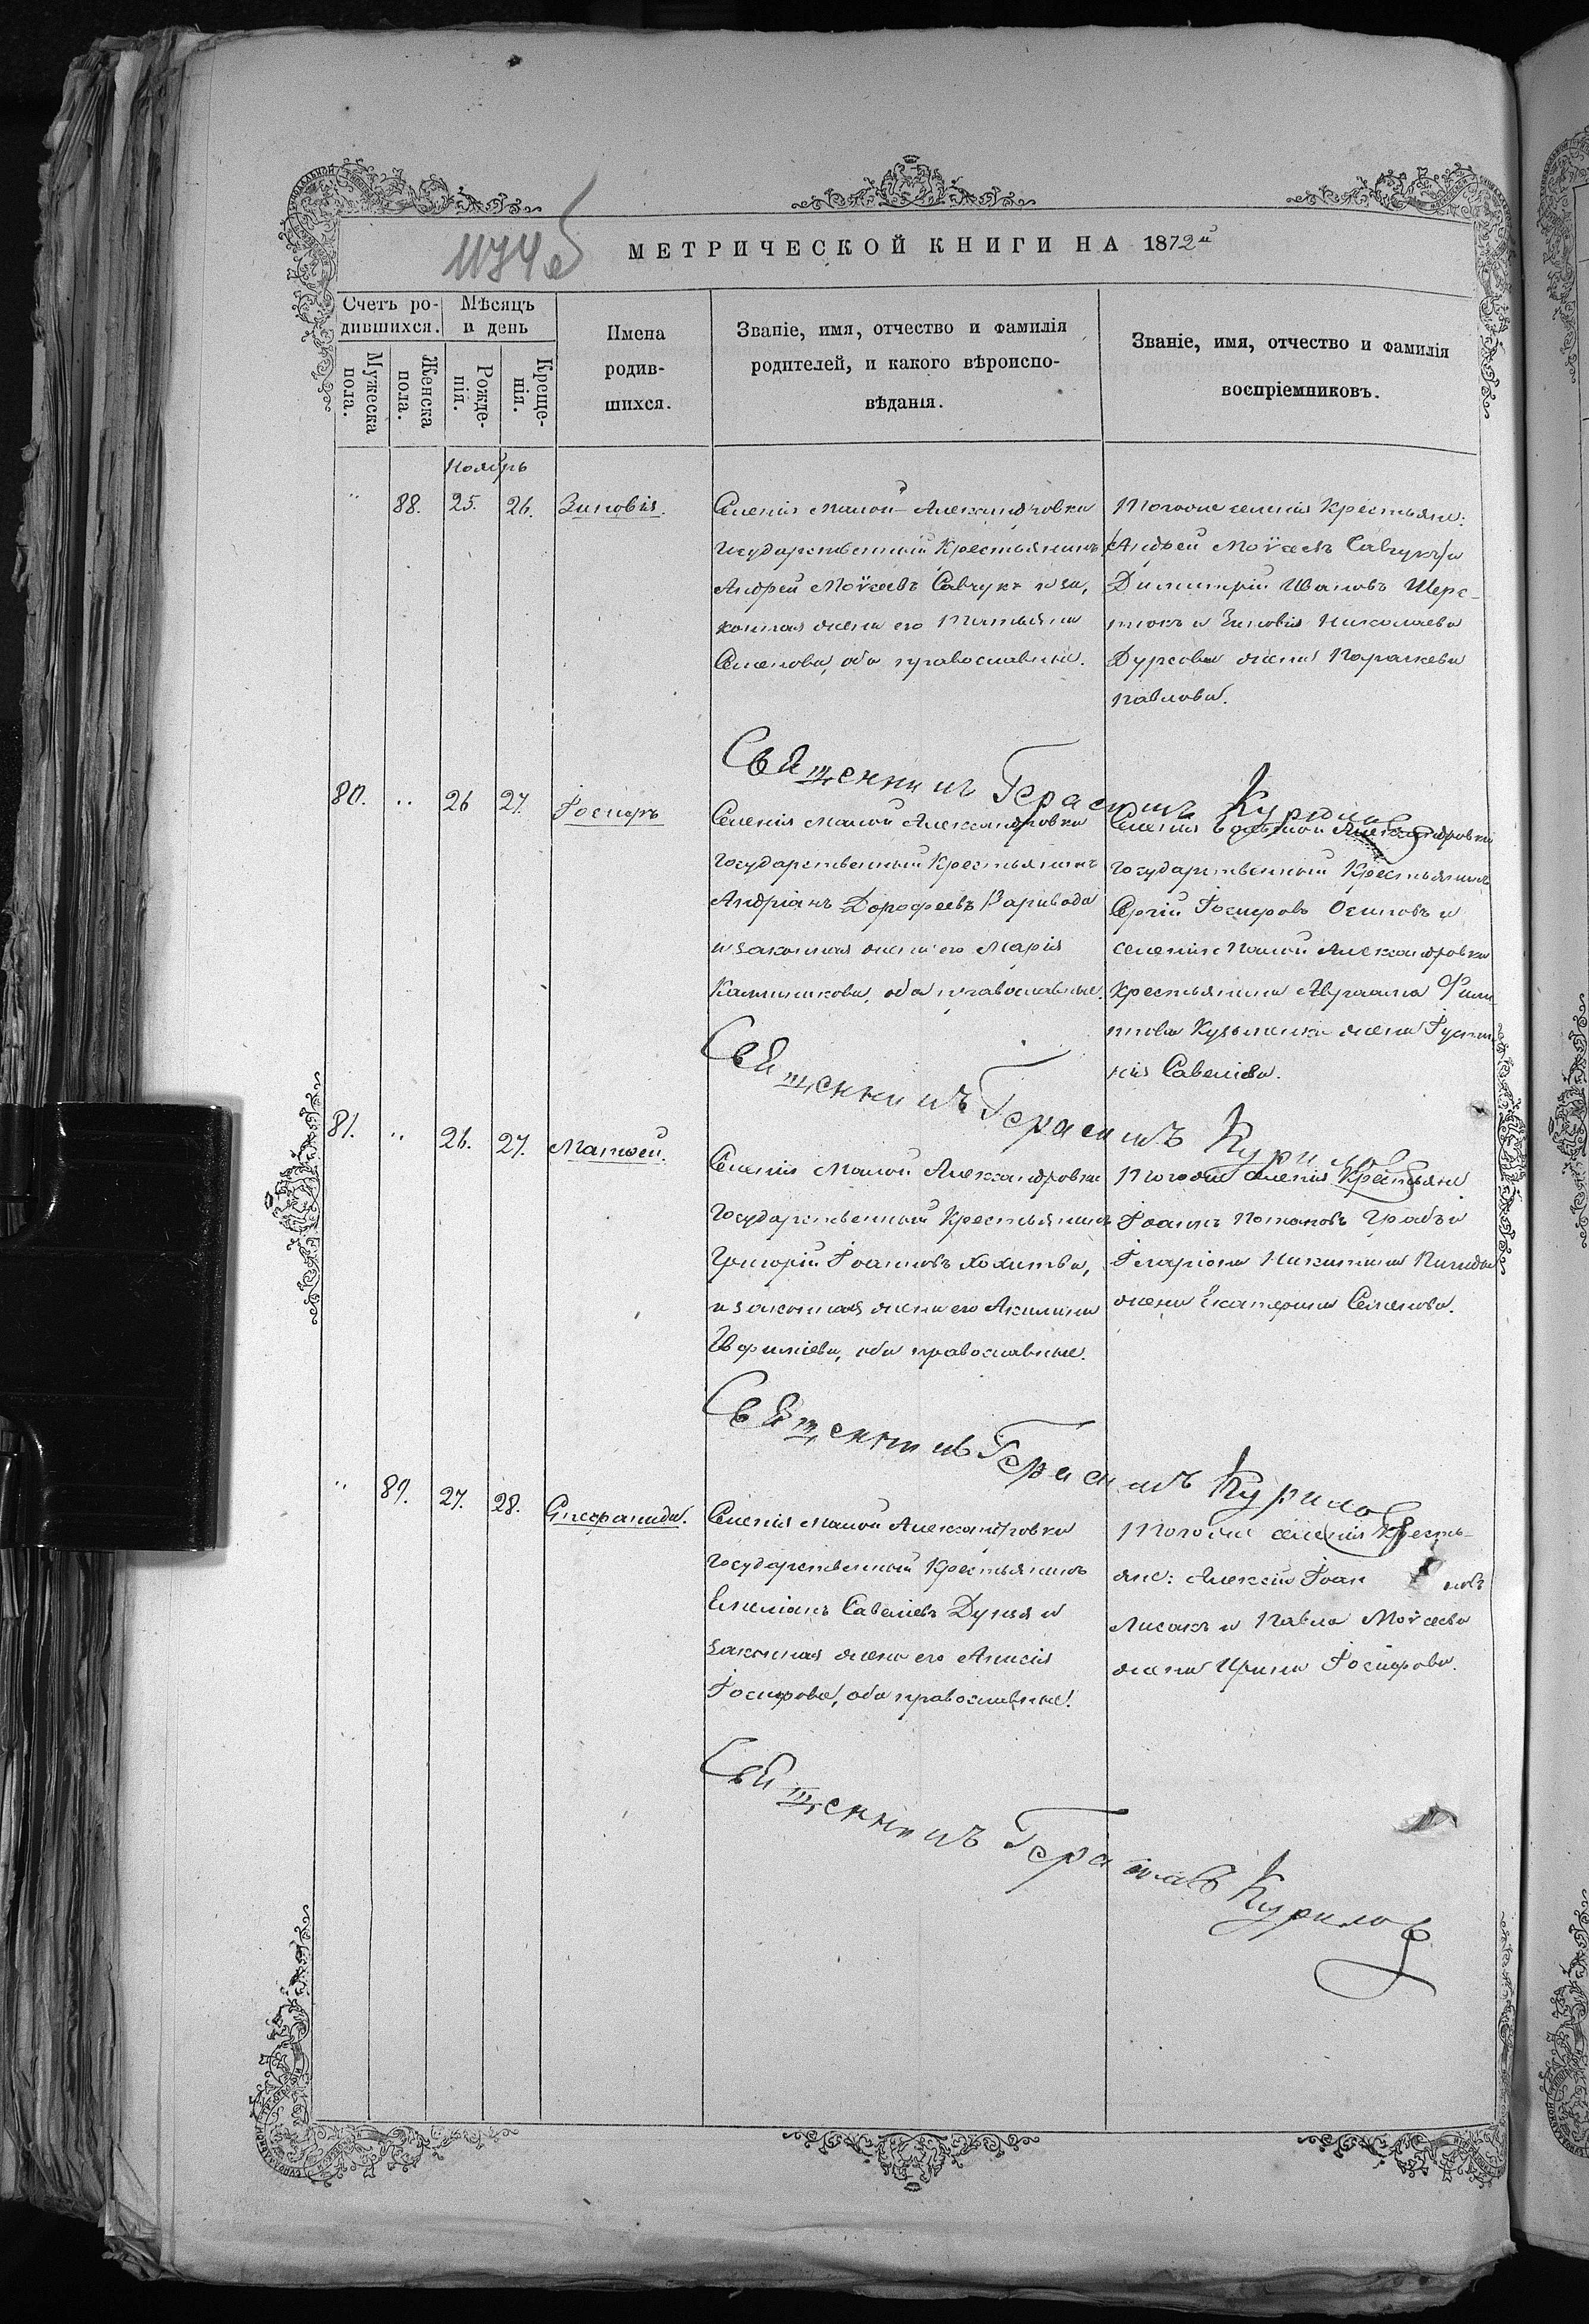 1174 об
МЕТРИЧЕСКОЙ КНИГИ НА 1872й
Счетъ ро-
дившихся.
Мѣсяцъ
и день
Мужеска
пола.
Женска
пола.
Рожде-
нія.
Креще-
нія.
Имена
родив-
шихся.
Званіе, имя, отчество и фамилія
родителей, и какого вѣроиспо-
вѣданія.
Званіе, имя, отчество и фамилія
воспріемниковъ.
Ноябрь
" 88. 25. 26. Зиновія.
Селенія Малой Александровки
Государственный Крестьянинъ
Андрей Моѵсеевъ Савчукъ и за,
конная жена его Татьяна
Семенова, оба православные.
Тогоже селенія Крестьяне:
Андрей Моѵсеевъ Савчукъ и
Димитрій Ивановъ Шере-
тюкъ и Зиновія Николаева
Дурсова жена Параскева
Павлова.
Священникъ Герасимъ Курилов
80. " 26 27. Іосифъ
Селенія Малой Александровки
Государственный Крестьянинъ
Андріанъ Дорофеевъ Варивода
и законная жена его Марія
Каллиникова, оба православные.
Селенія Большой Александровки
Государственный Крестьянинъ
Сергій Іосифовъ Осиповъ и
селенія Малой Александровки
Крестьянина Авраама Фили-
пова Кузьменка жена Іусти-
нія Савеліева.
Священникъ Герасимъ Курилов
81. " 26. 27. Матѳей.
Селенія Малой Александровки
Государственный Крестьянинъ
Григорій Іоанновъ Хохитва,
и законная жена его Акилина
Евфиміева, оба православные.
Тогоже селенія Крестьяне
Іоаннъ Потаповъ Грабъ и
Іларіона Никитина
жена Екатерина Семенова.
Священникъ Герасимъ Курилов
" 89. 27. 28. Епифанида.
Селенія Малой Александровки
Государственный Крестьянинъ
Емеліанъ Савеліевъ Дупля и
законная жена его Анисія
Іосифова, оба православные.
Тогоже селенія Кресть-
яне: Алексій Іоан новъ
Лисакъ и Павла Моѵсеева
жена Ирина Іосифова.
Священникъ Герасимъ Курилов